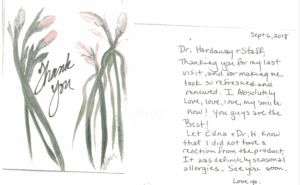 Thank
you
Sept 6, 2018
Dr. Hardaway + Staff,
Thanking you for my last
visit, and for making me
look so refreshed and
renewed. I Absolutely
Love, love, love, my smile
now! You guys are the
Best!
Let Edna + Dr. H. know
that I did not have a
reaction from the product.
It was definitely seasonal
allergies. See you soon.
Love ya.